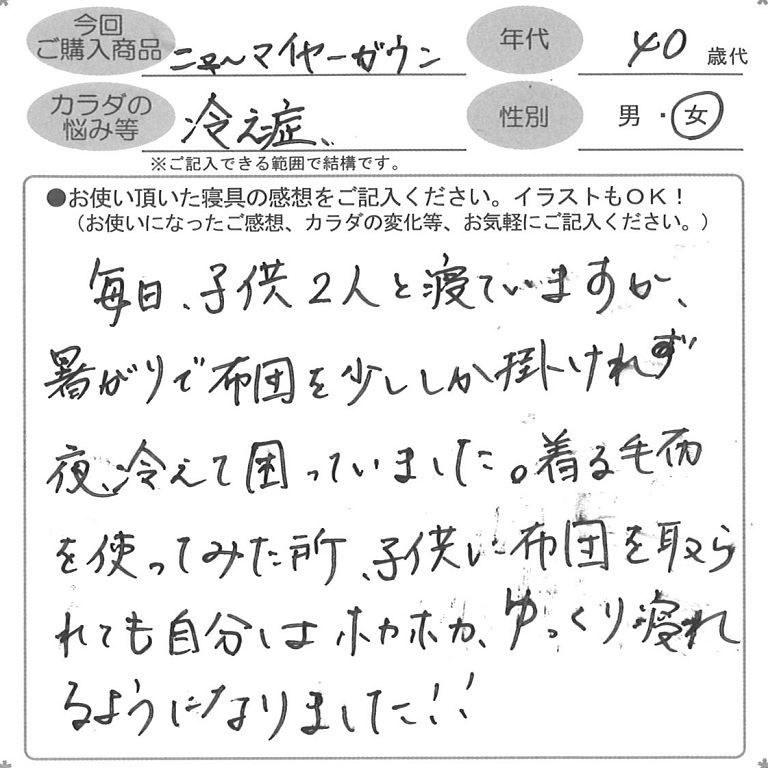 今回
ご購入商品 ニューマイヤーガウン 年代 40 歳代
カラダの
悩み等 冷え症、 性別 男・女
※ご記入できる範囲で結構です。
●お使い頂いた寝具の感想をご記入ください。イラストもOK!
(お使いになったご感想、カラダの変化等、お気軽にご記入ください。)
毎日、子供2人と寝ていますが、
暑がりで布団を少ししか掛けれず
夜、冷えて困っていました。着る毛布
を使ってみた所、子供に布団を取ら
れても自分はホカホカ、ゆっくり寝れ
るようになりました!!